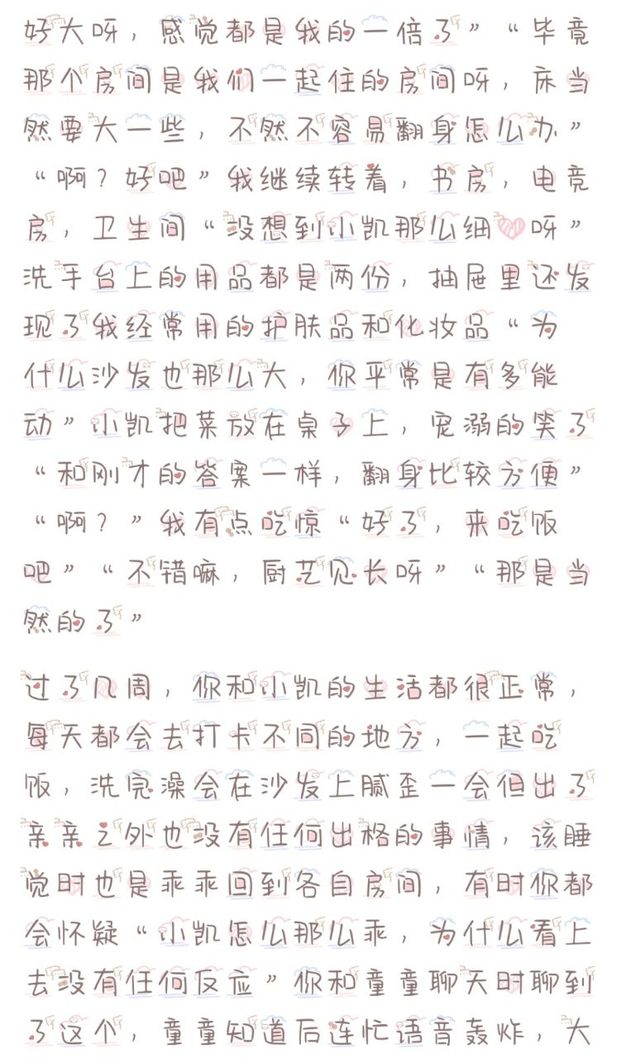 好大呀，感觉都是我的一倍了”“毕竟
那个房间是我们一起住的房间呀，床当
然要大一些，不然不容易翻身怎么办”
“啊？好吧”我继续转着，书房，电竞
房，卫生间“没想到小凯那么细心呀”
洗手台上的用品都是两份，抽屉里还发
现了我经常用的护肤品和化妆品“为
什么沙发也那么大，你平常是有多能
动”小凯把菜放在桌子上，宠溺的笑了
“和刚才的答案一样，翻身比较方便”
“啊？”我有点吃惊“好了，来吃饭
吧”“不错嘛，厨艺见长呀”“那是当
然的了”
过了几周，你和小凯的生活都很正常，
每天都会去打卡不同的地方，一起吃
饭，洗完澡会在沙发上腻歪一会但出了
亲亲之外也没有任何出格的事情，该睡
觉时也是乖乖回到各自房间，有时你都
会怀疑“小凯怎么那么乖，为什么看上
去没有任何反应”你和童童聊天时聊到
了这个，童童知道后连忙语音轰炸，大